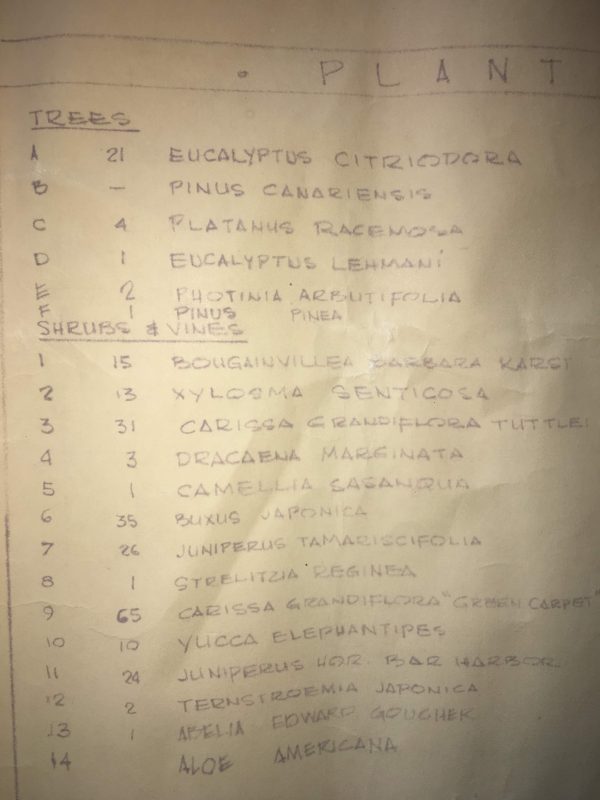 · PLANT
TREES
A 21 EUCALYPTUS CITRIODORA
B — PINUS CANARIENSIS
C 4 PLATANUS RACEMOSA
D 1 EUCALYPTUS LEHMANI
E 2 PHOTINIA ARBUTIFOLIA
F 1 PINUS PINEA
SHRUBS & VINES
1 15 BOUGAINVILLEA BARBARA KARST
2 13 XYLOSMA SENTICOSA
3 31 CARISSA GRANDIFLORA TUTTLEI
4 3 DRACAENA MARGINATA
5 1 CAMELLIA SASANQUA
6 35 BUXUS JAPONICA
7 26 JUNIPERUS TAMARISCIFOLIA
8 1 STRELITZIA REGINEA
9 65 CARISSA GRANDIFLORA "GREEN CARPET"
10 10 YUCCA ELEPHANTIPES
11 24 JUNIPERUS HOR. BAR HARBOR
12 2 TERNSTROEMIA JAPONICA
13 1 ABELIA EDWARD GOUCHER
14 ALOE AMERICANA